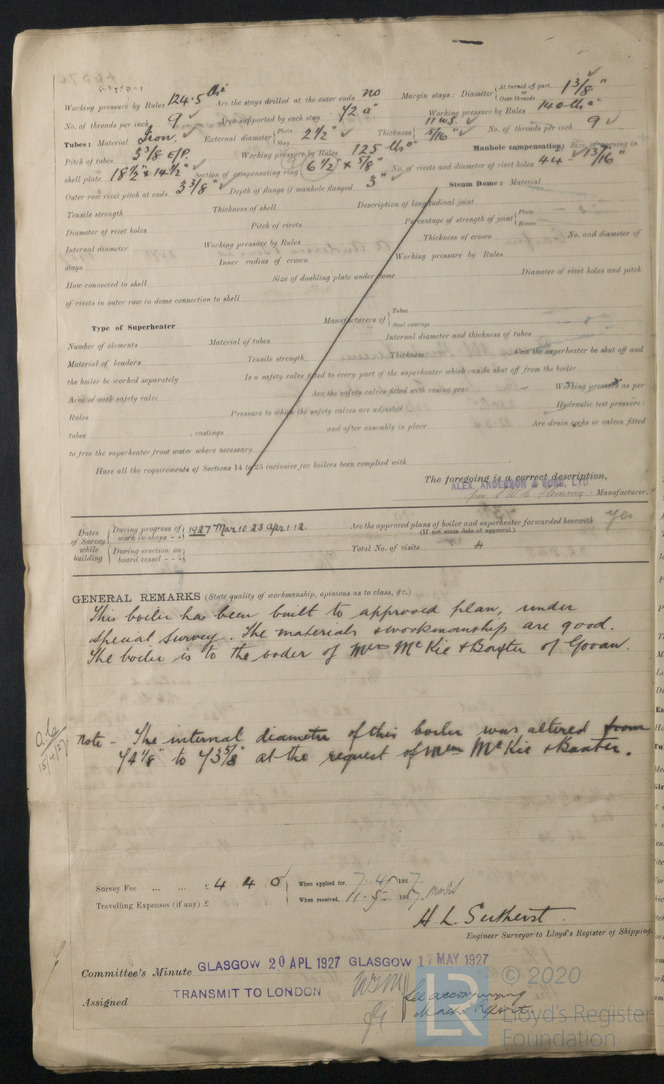 Working pressure by Rules 124.5 lbs Are the stays drilled at the outer ends no Margin stays: Diameter { At turned off part 1 3/8" Over threads
No. of threads per inch 9 Area supported by each stay 42 □" Working pressure by Rules 140 lbs □"
Tubes: Material Iron External diameter { Plain Stay 2 1/2" Thickness { 11 W.G. 5/16" No. of threads per inch 9
Pitch of tubes 3 3/8 E/P. Working pressure by Rules 125 lbs □" Manhole compensation: Size of opening in
shell plate 18 1/2" x 14 1/2" Section of compensating ring 6 1/2" x 5/8" No. of rivets and diameter of rivet holes 44 - 13/16"
Outer row rivet pitch at ends 3 3/8" Depth of flange if manhole flanged 3" Steam Dome: Material
Tensile strength Thickness of shell Description of longitudinal joint
Diameter of rivet holes Pitch of rivets Percentage of strength of joint { Plate Rivets
Internal diameter Working pressure by Rules Thickness of crown No. and diameter of
stays Inner radius of crown Working pressure by Rules
How connected to shell Size of doubling plate under dome Diameter of rivet holes and pitch
of rivets in outer row in dome connection to shell
Type of Superheater Manufacturers of { Tubes Steel castings
Number of elements Material of tubes Internal diameter and thickness of tubes
Material of headers Tensile strength Thickness Can the superheater be shut off and
the boiler be worked separately Is a safety valve fitted to every part of the superheater which can be shut off from the boiler
Area of each safety valve Are the safety valves fitted with easing gear Working pressure as per
Rules Pressure to which the safety valves are adjusted Hydraulic test pressure:
tubes castings and after assembly in place Are drain cocks or valves fitted
to free the superheater from water where necessary
Have all the requirements of Sections 14 to 23 inclusive for boilers been complied with
The foregoing is a correct description,
ALEX. ANDERSON & SONS, LTD
Manufacturer.
Dates of Survey while building { During progress of work in shops - - 1927 Mar 10. 23 Apr 1. 12. Are the approved plans of boiler and superheater forwarded herewith yes
(If not state date of approval.)
During erection on board vessel - - - Total No. of visits 4
GENERAL REMARKS (State quality of workmanship, opinions as to class, &c.)
This boiler has been built to approved plan, under
special survey. The materials & workmanship are good.
The boiler is to the order of Messrs McKie & Baxter of Govan.
Note - The internal diameter of this boiler was altered from
4 1/8" to 43 5/8" at the request of Messrs McKie & Baxter.
15/4/27
Survey Fee ... ... £ 4 4 0 When applied for, 7.4.1927.
Travelling Expenses (if any) £ When received, 11-5-1927.
Engineer Surveyor to Lloyd's Register of Shipping.
Committee's Minute GLASGOW 20 APL 1927 GLASGOW 17 MAY 1927
Assigned TRANSMIT TO LONDON See accompanying
Machy Report.
LR © 2020
Lloyd's Register
Foundation